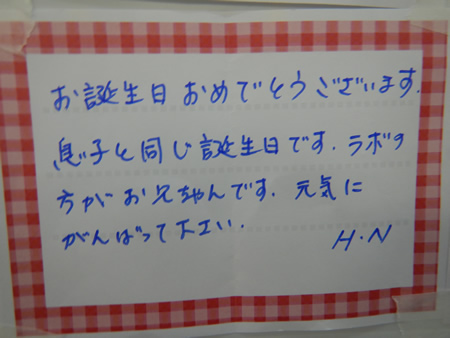 お誕生日 おめでとうございます.
息子と同じ誕生日です. ラボの
方がお兄ちゃんです. 元気に
がんばって下エい.
H.N